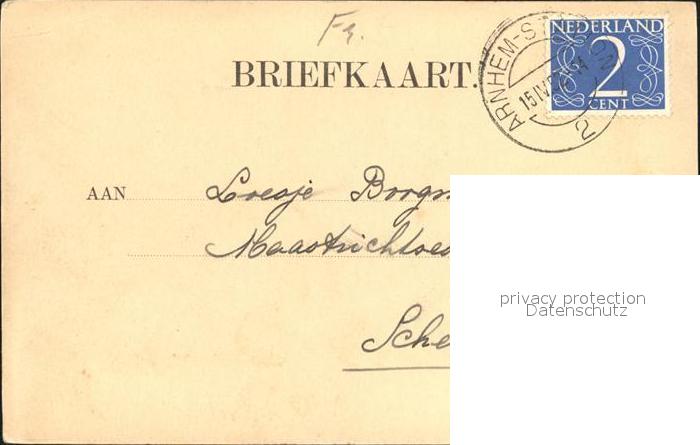 Fr.
BRIEFKAART.
NEDERLAND
2
CENT
ARNHEM-ST
15 IV
2
AAN Loesje Borg
Maastrichtse
Sche
privacy protection
Datenschutz